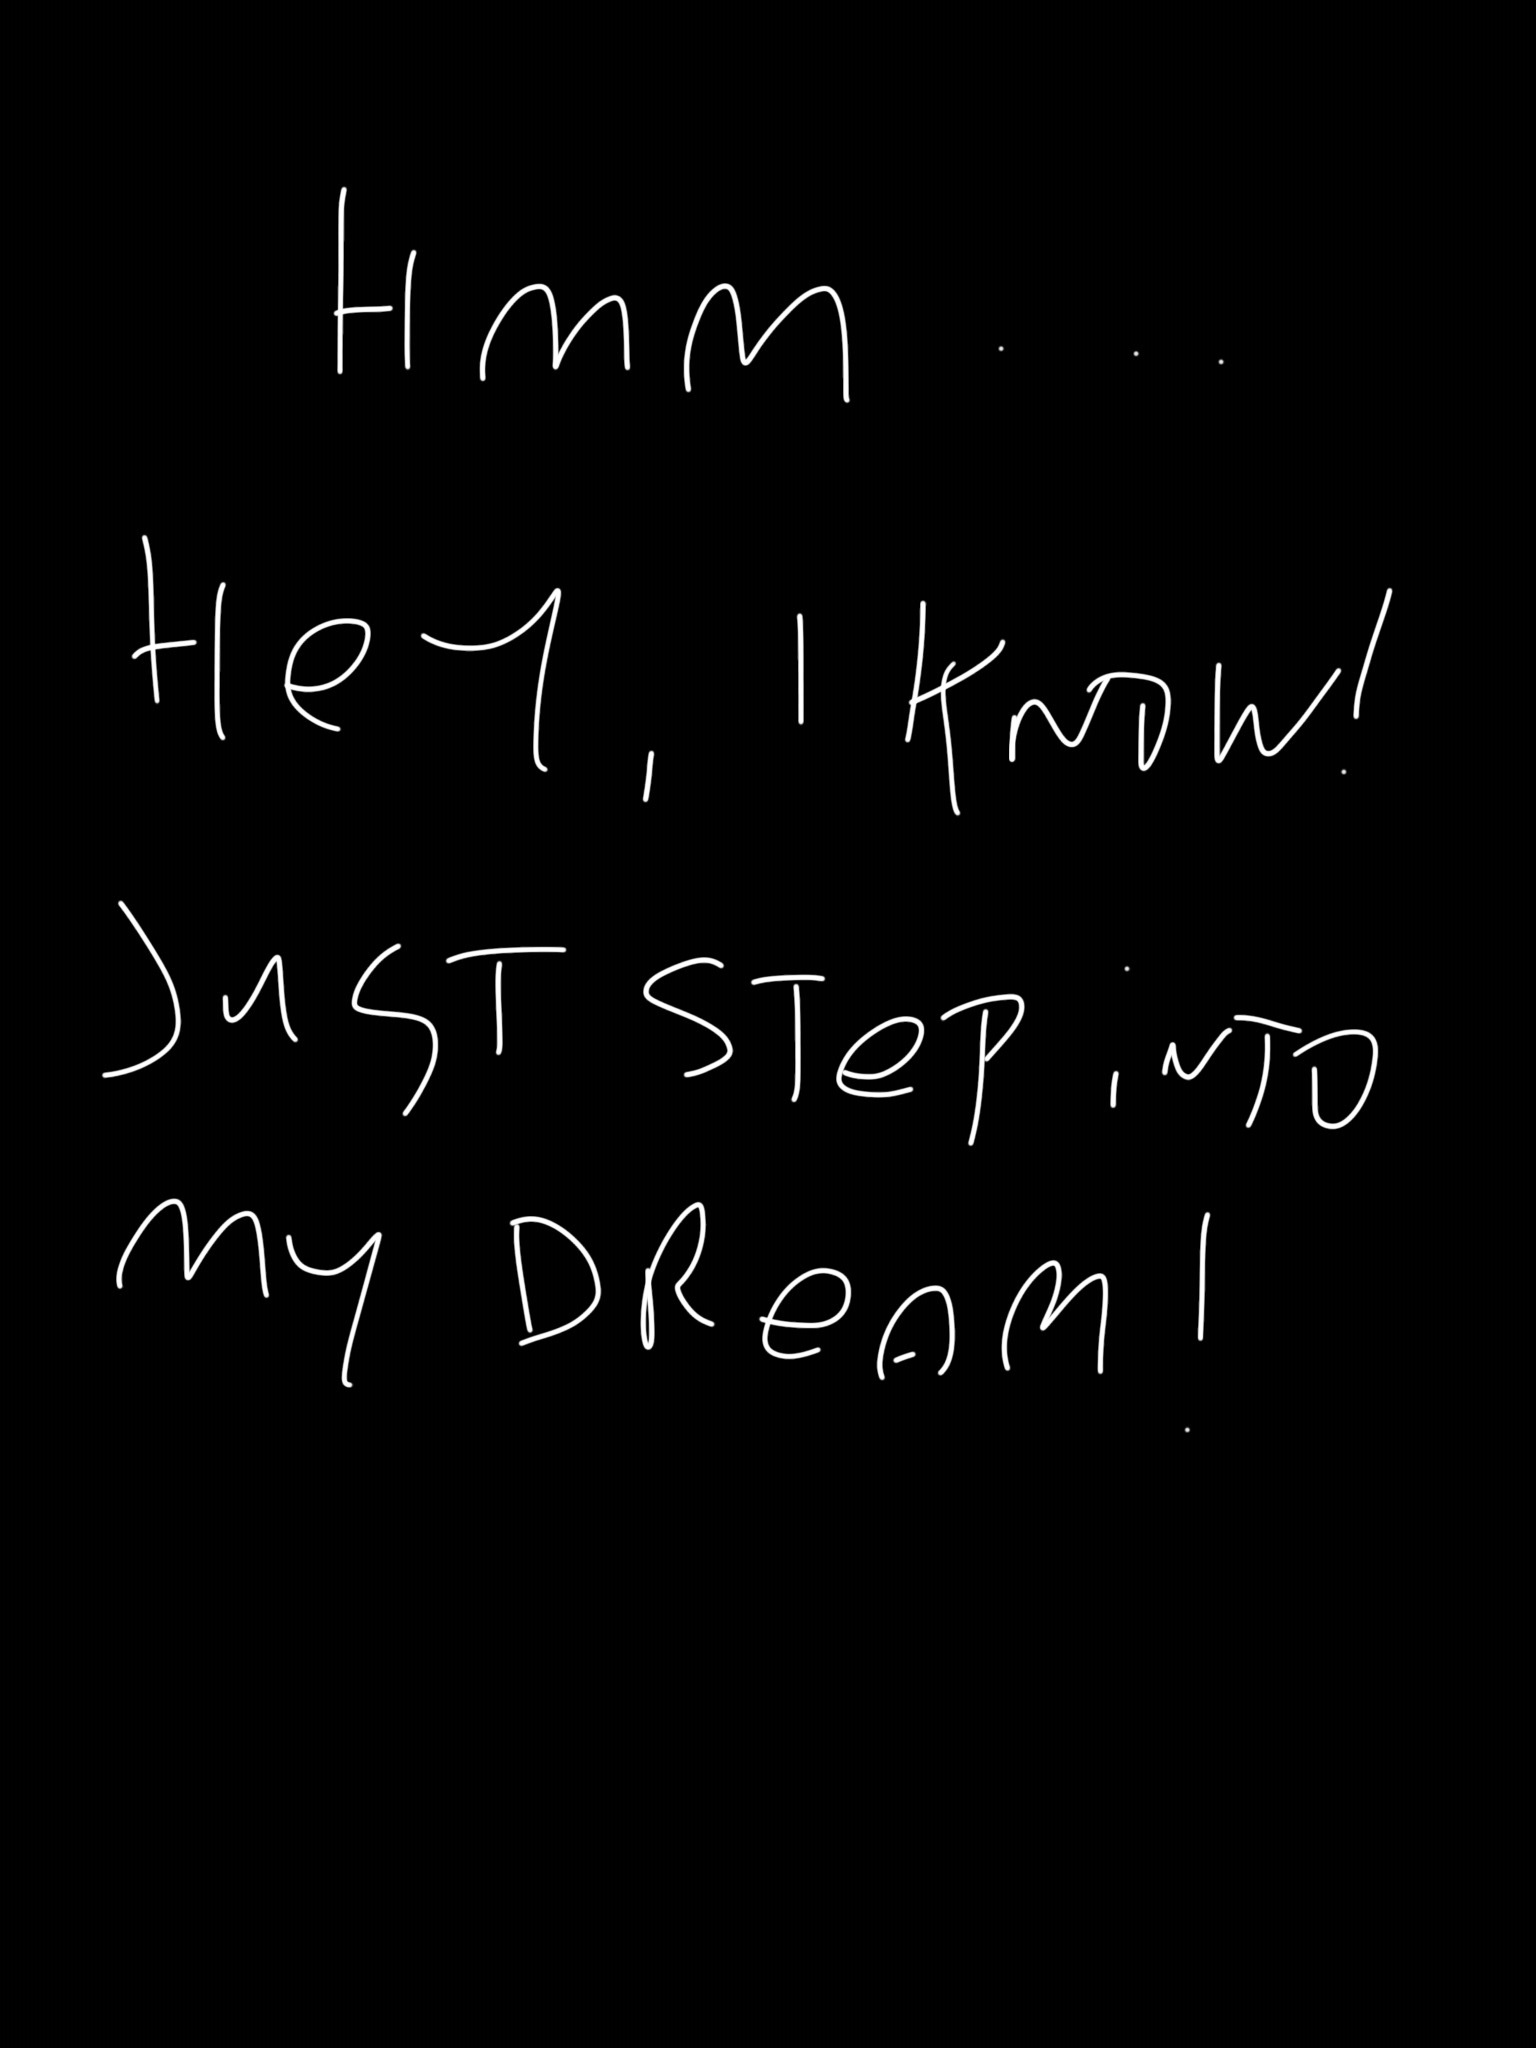 Hmm...
Hey, I know!
Just step into
my dream!